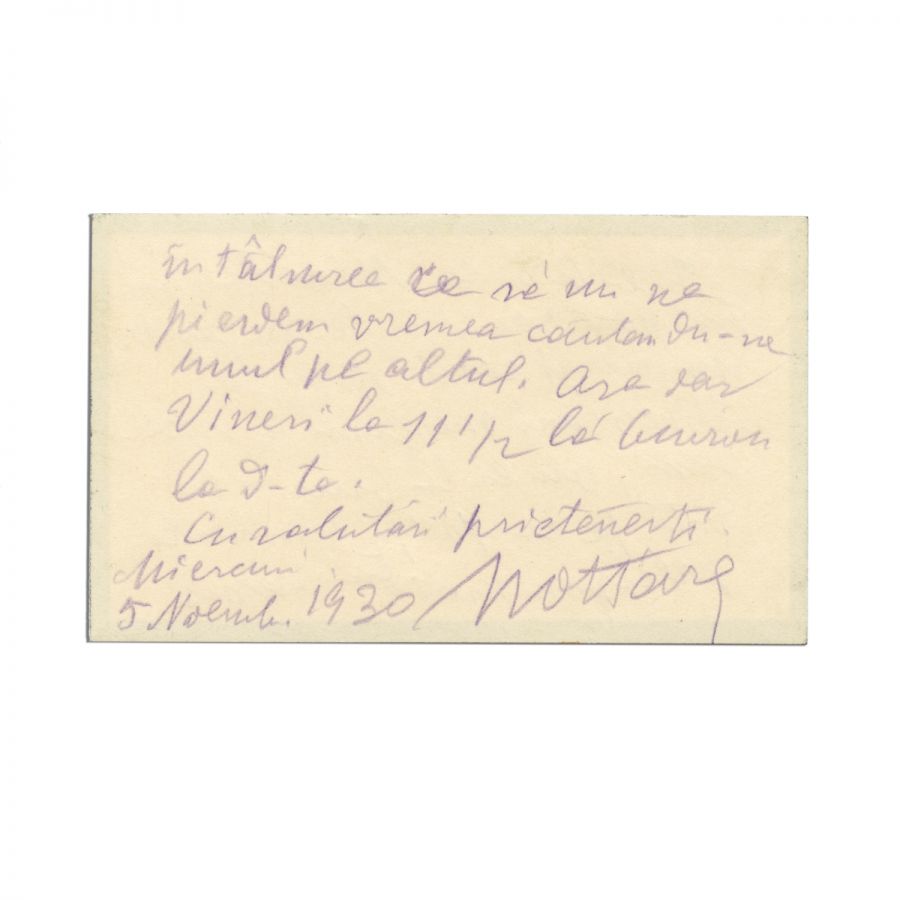 întâlnirea ca să nu ne
pierdem vremea căutându-ne
unul pe altul. Așa dar
Vineri la 11 1/2 la birou
la d-ta.
Cu salutări prietenești.
Miercuri
5 Noemb. 1930 Nottara